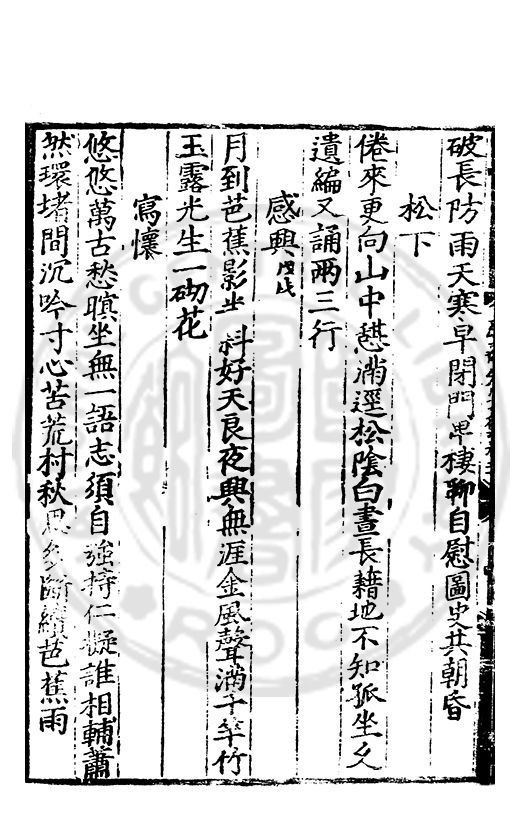 破長防雨天寒早閉門卑棲聊自慰圖史共朝昏
松下
倦來更向山中憇滿逕松陰白晝長藉地不知孤坐久
遺編又誦兩三行
感興戊戌
月到芭蕉影半斜好天良夜興無涯金風聲滿千竿竹
玉露光生一砌花
寫懷
悠悠萬古愁暝坐無一語志須自強持仁擬誰相輔蕭
然環堵間沉吟寸心苦荒村秋思多斷續芭蕉雨